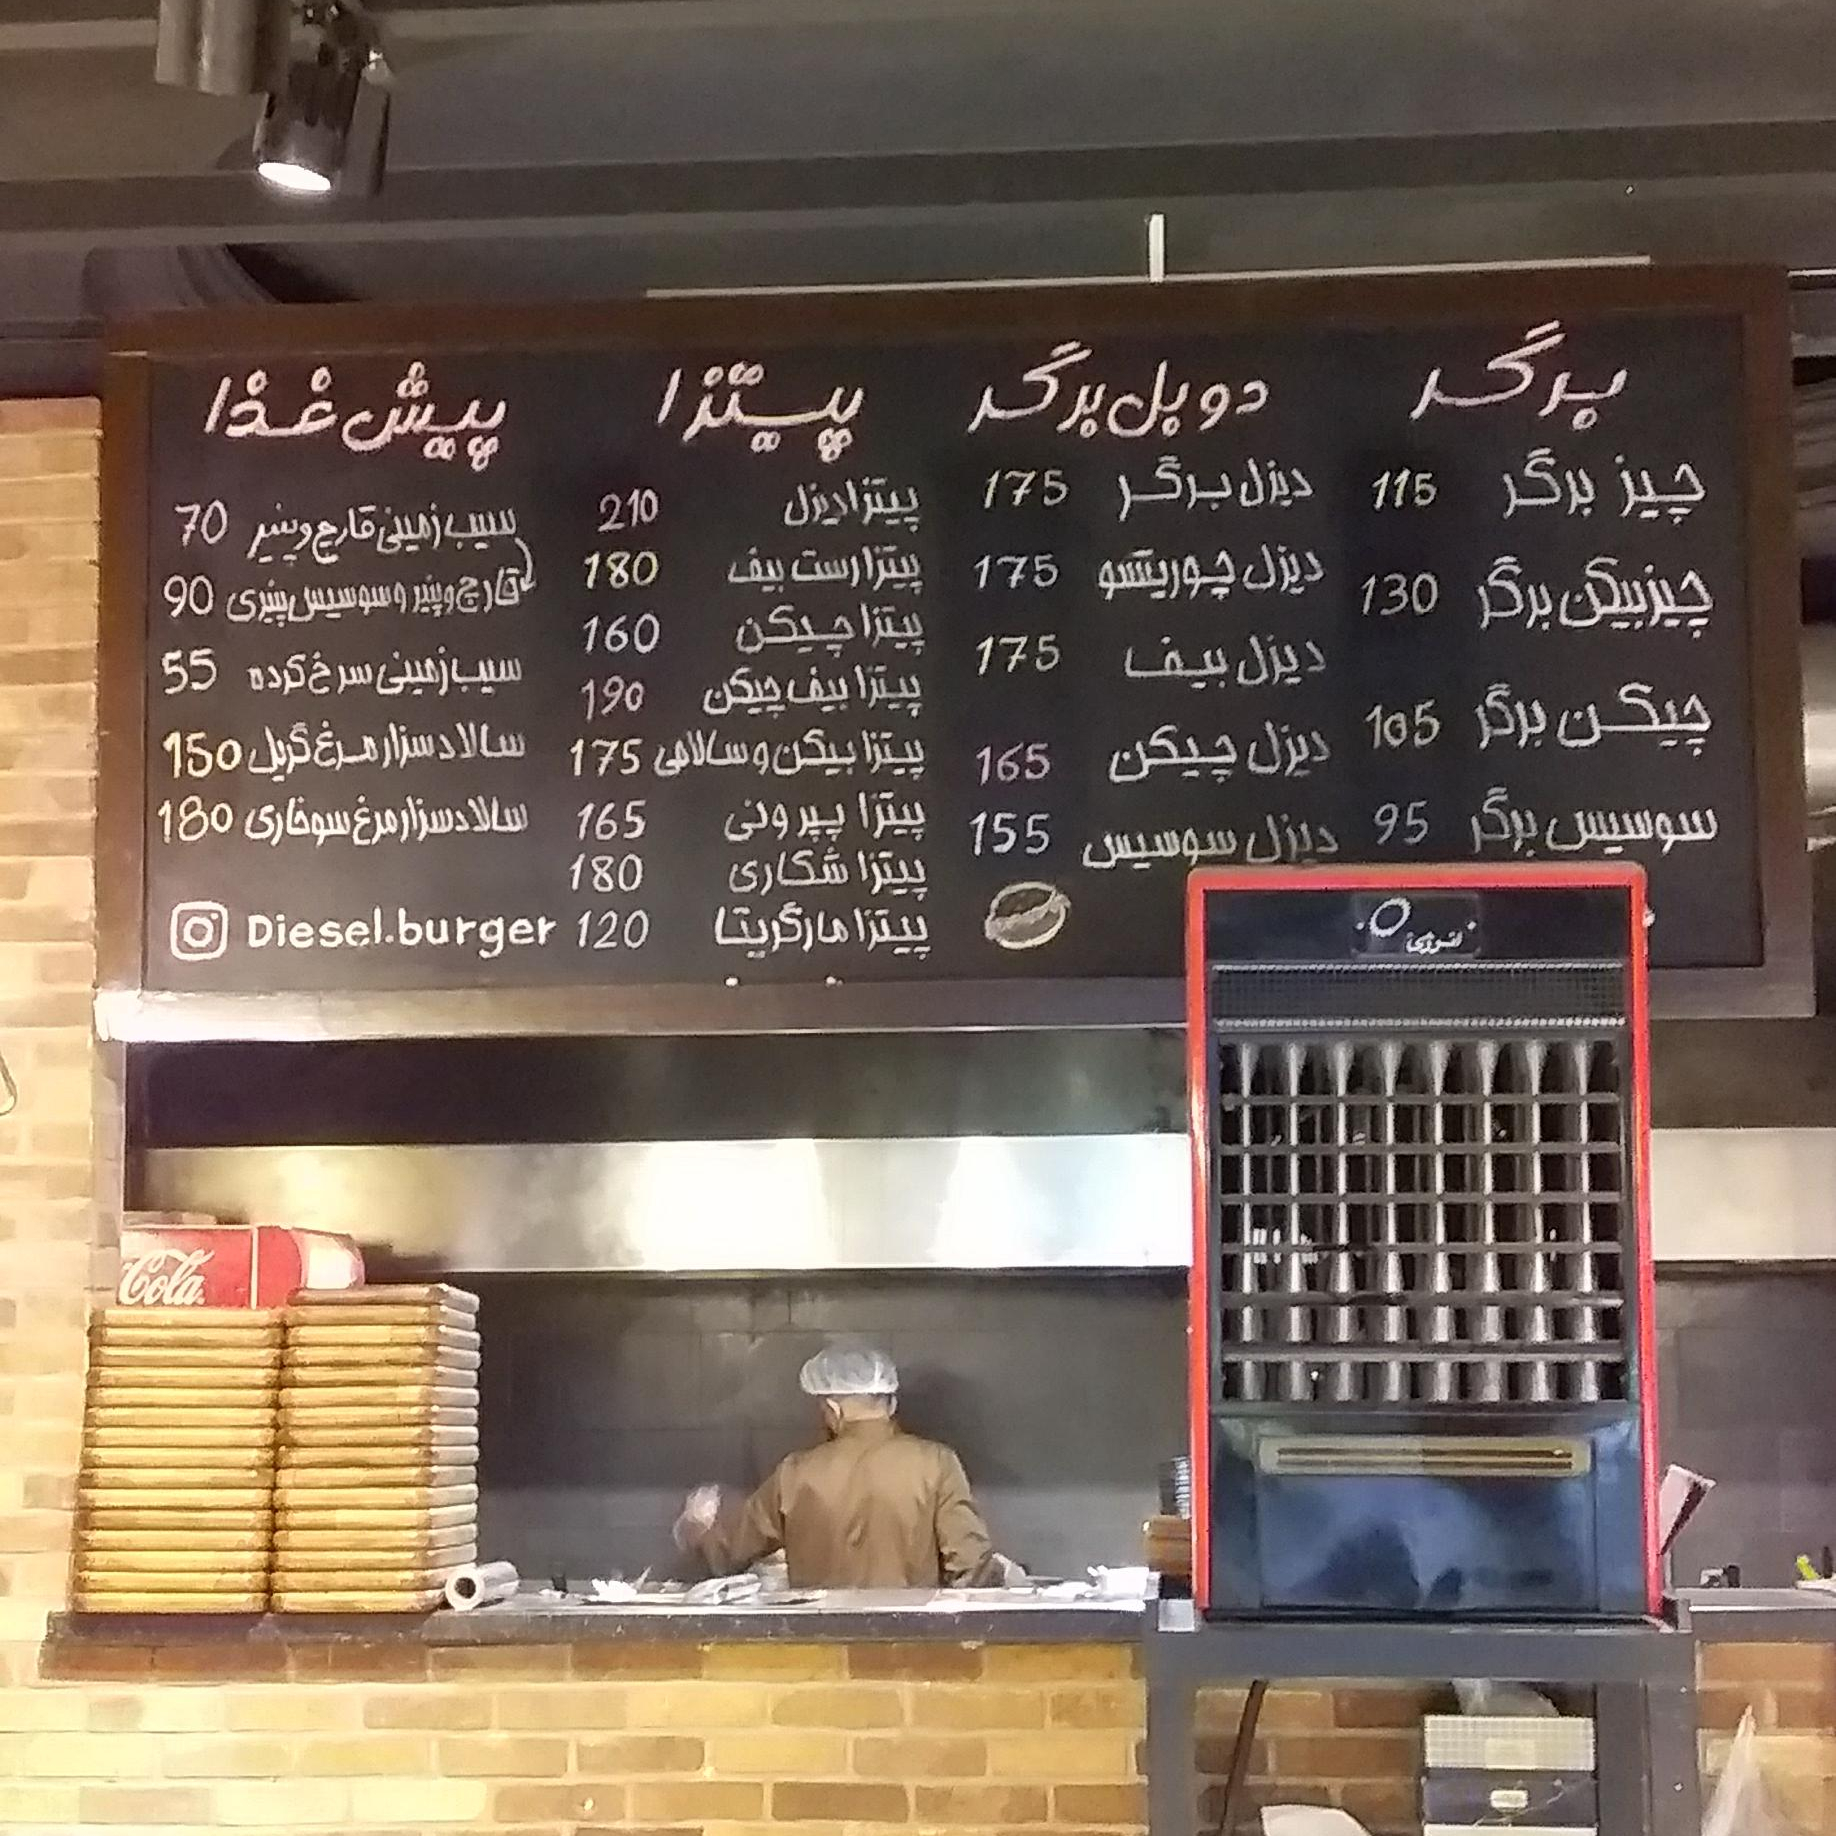 برگر
چیز برگر 115
چیزبیکن برگر 130
چیکن برگر 105
سوسیس برگر 95
دوبل برگر
دیزل برگر 175
دیزل چوریتسو 175
دیزل بیف 175
دیزل چیکن 165
دیزل سوسیس 155
پیتزا
پیتزا دیزل 210
پیتزا رست بیف 180
پیتزا چیکن 160
پیتزا بیف چیکن 190
پیتزا بیکن و سالامی 175
پیتزا پپرونی 165
پیتزا شکاری 180
پیتزا مارگریتا 120
پیش غذا
سیب زمینی قارچ و پنیر 70
قارچ و پنیر و سوسیس پنیری 90
سیب زمینی سرخ کرده 55
سالاد سزار مرغ گریل 150
سالاد سزار مرغ سوخاری 180
Diesel.burger
انرژی
Cola